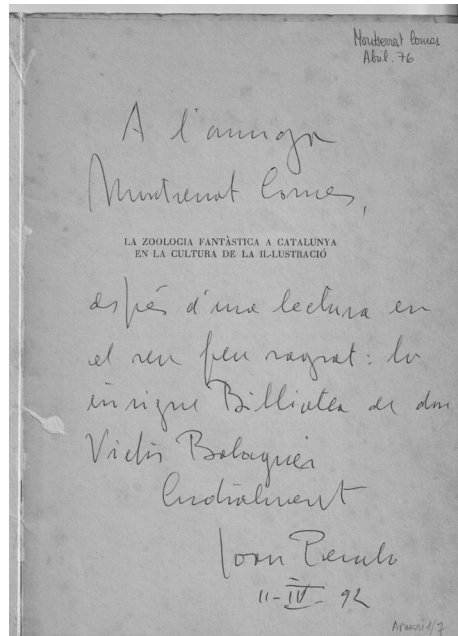 Montserrat Comas
Abril. 76
A l'amiga
Montserrat Comas,
LA ZOOLOGIA FANTÀSTICA A CATALUNYA
EN LA CULTURA DE LA IL·LUSTRACIÓ
després d'una lectura en
el seu feu sagrat: la
insigne Biblioteca de don
Víctor Balaguer
Cordialment
Joan Perucho
11-IV-92
Armari 1/7